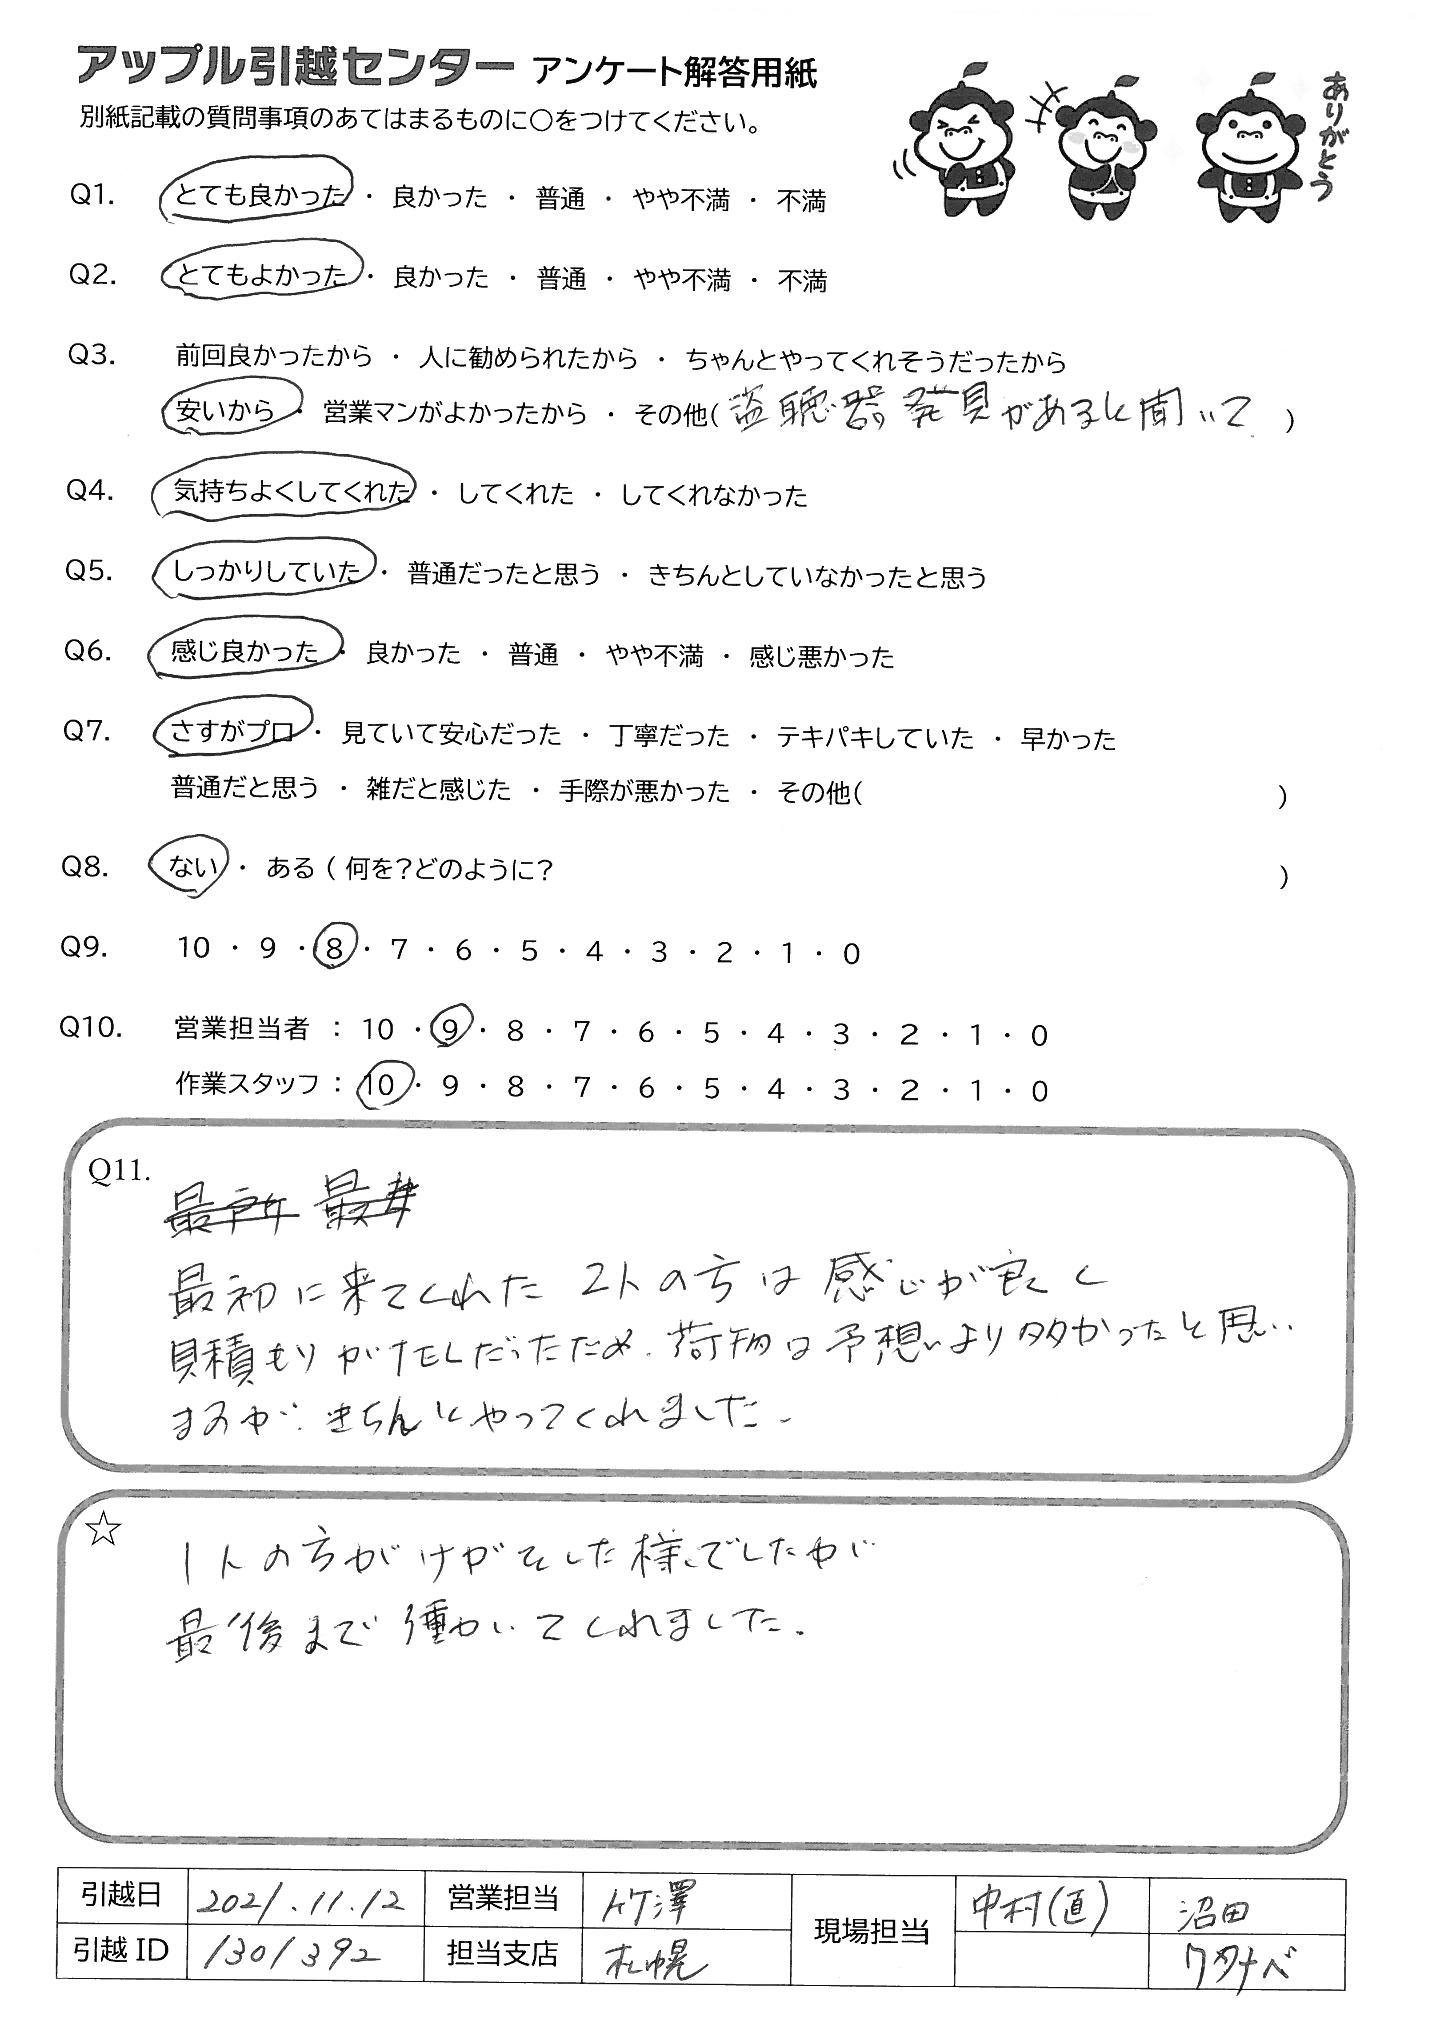 アップル引越センター アンケート解答用紙
別紙記載の質問事項のあてはまるものに○をつけてください。
ありがとう
Q1. とても良かった ・ 良かった ・ 普通 ・ やや不満 ・ 不満
Q2. とてもよかった ・ 良かった ・ 普通 ・ やや不満 ・ 不満
Q3. 前回良かったから ・ 人に勧められたから ・ ちゃんとやってくれそうだったから
安いから ・ 営業マンがよかったから ・ その他( 盗聴器発見があると聞いて )
Q4. 気持ちよくしてくれた ・ してくれた ・ してくれなかった
Q5. しっかりしていた ・ 普通だったと思う ・ きちんとしていなかったと思う
Q6. 感じ良かった ・ 良かった ・ 普通 ・ やや不満 ・ 感じ悪かった
Q7. さすがプロ ・ 見ていて安心だった ・ 丁寧だった ・ テキパキしていた ・ 早かった
普通だと思う ・ 雑だと感じた ・ 手際が悪かった ・ その他( )
Q8. ない ・ ある ( 何を?どのように? )
Q9. 10 ・ 9 ・ 8 ・ 7 ・ 6 ・ 5 ・ 4 ・ 3 ・ 2 ・ 1 ・ 0
Q10. 営業担当者 : 10 ・ 9 ・ 8 ・ 7 ・ 6 ・ 5 ・ 4 ・ 3 ・ 2 ・ 1 ・ 0
作業スタッフ : 10 ・ 9 ・ 8 ・ 7 ・ 6 ・ 5 ・ 4 ・ 3 ・ 2 ・ 1 ・ 0
Q11.
最初に来てくれた 2人の方は 感じが良く
見積もりが だったため、荷物は予想より多かったと思い
ますが、きちんとやってくれました。
☆ 1人の方がけがをした様でしたが
最後まで働いてくれました。
引越日 2021.11.12 営業担当 竹澤 現場担当 中村(直) 沼田
引越ID 1301392 担当支店 札幌 ワタナベ